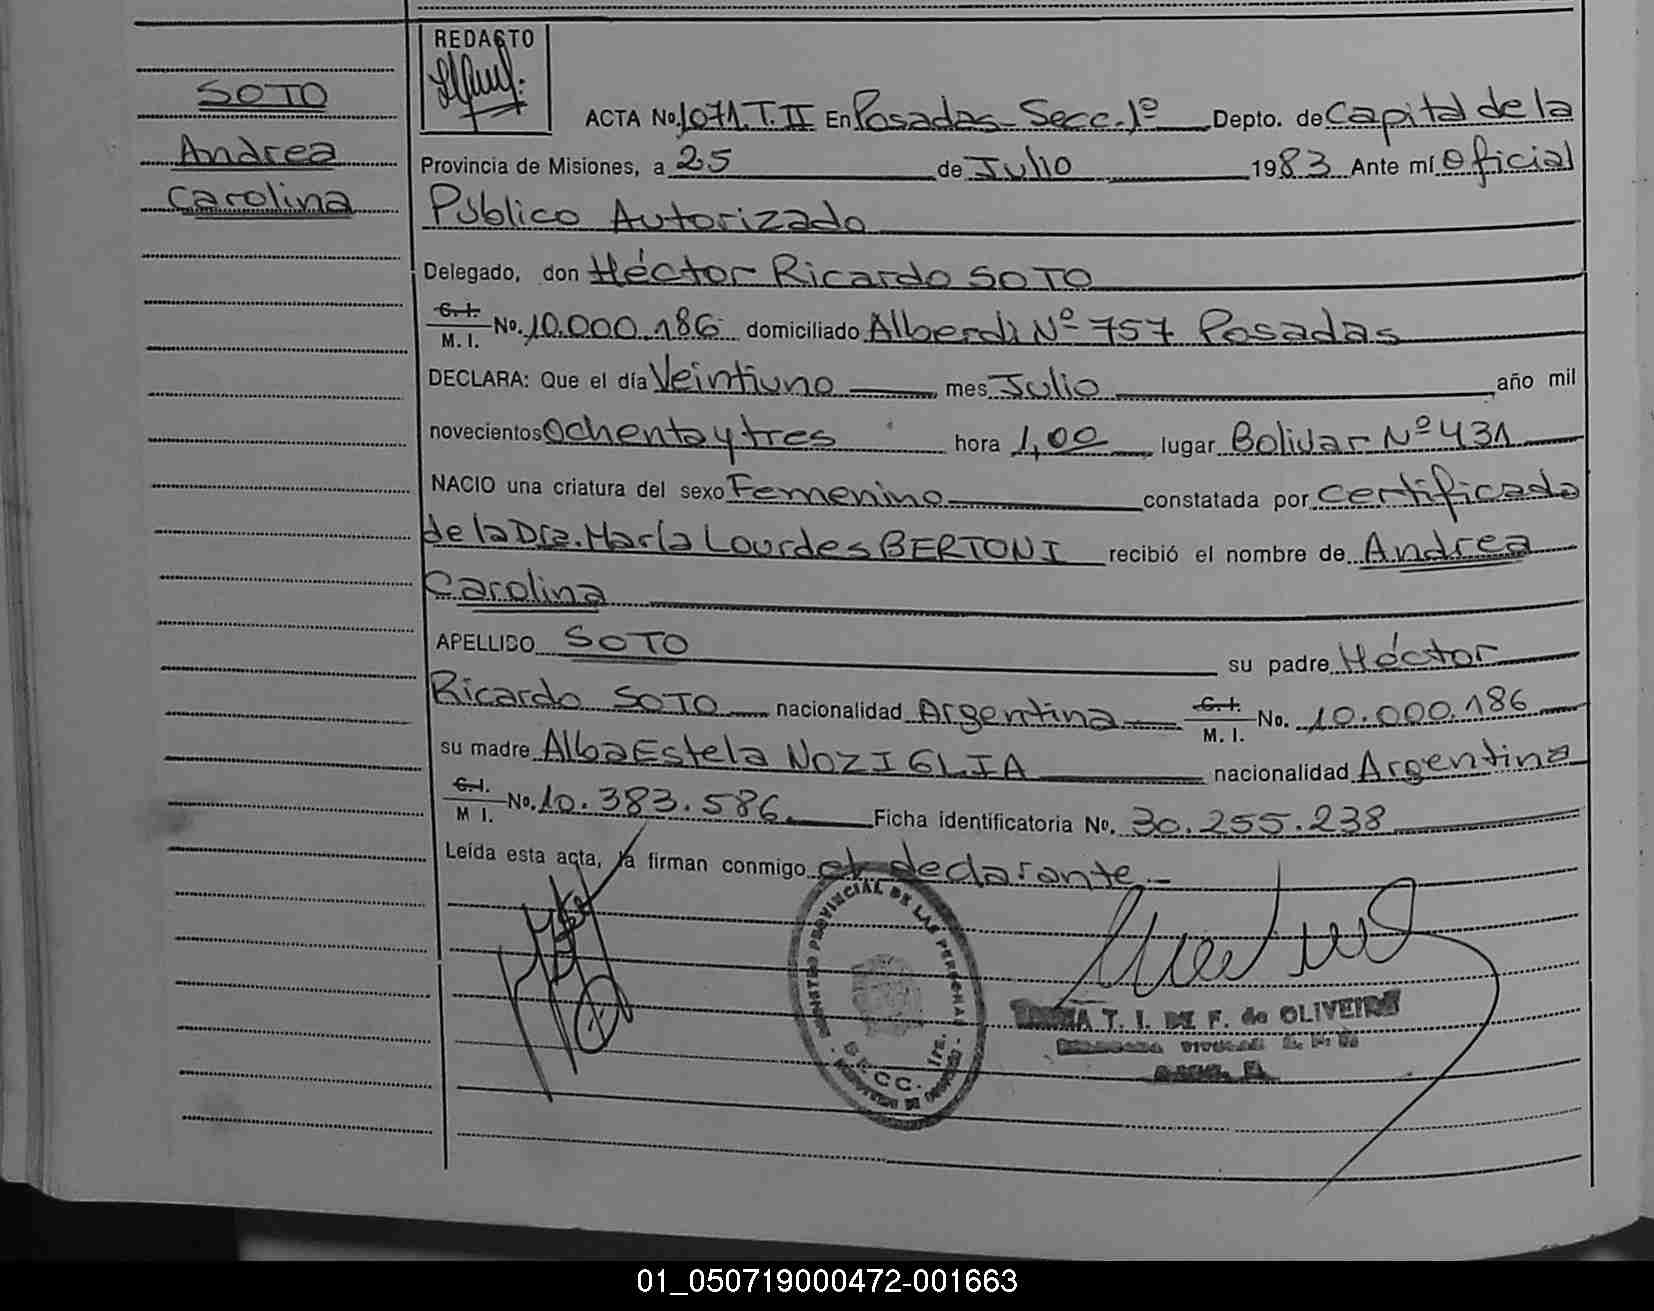 SOTO
Andrea
Carolina
REDACTO
ACTA No. 1071. T. II En Posadas - Secc. 1º Depto. de Capital de la
Provincia de Misiones, a 25 de Julio 1983 Ante mí Oficial
Público Autorizado
Delegado, don Héctor Ricardo SOTO
C. I.
M. I. No. 10.000.186 domiciliado Alberdi Nº 757 Posadas
DECLARA: Que el día Veintiuno mes Julio, año mil
novecientos Ochenta y tres hora 1,00, lugar Bolivar Nº 431
NACIO una criatura del sexo Femenino constatada por Certificado
de la Dra. María Lourdes BERTONI recibió el nombre de Andrea
Carolina
APELLIDO SOTO su padre Héctor
Ricardo SOTO nacionalidad Argentina C. I.
M. I. No. 10.000.186
su madre Alba Estela NOZIGLIA nacionalidad Argentina
C. I.
M I. No. 10.383.586. Ficha identificatoria No. 30.255.238
Leída esta acta, la firman conmigo el declarante.-
REGISTRO PROVINCIAL DE LAS PERSONAS
SECC. 1ra.
T. I. DE F. de OLIVEIRA
01_050719000472-001663